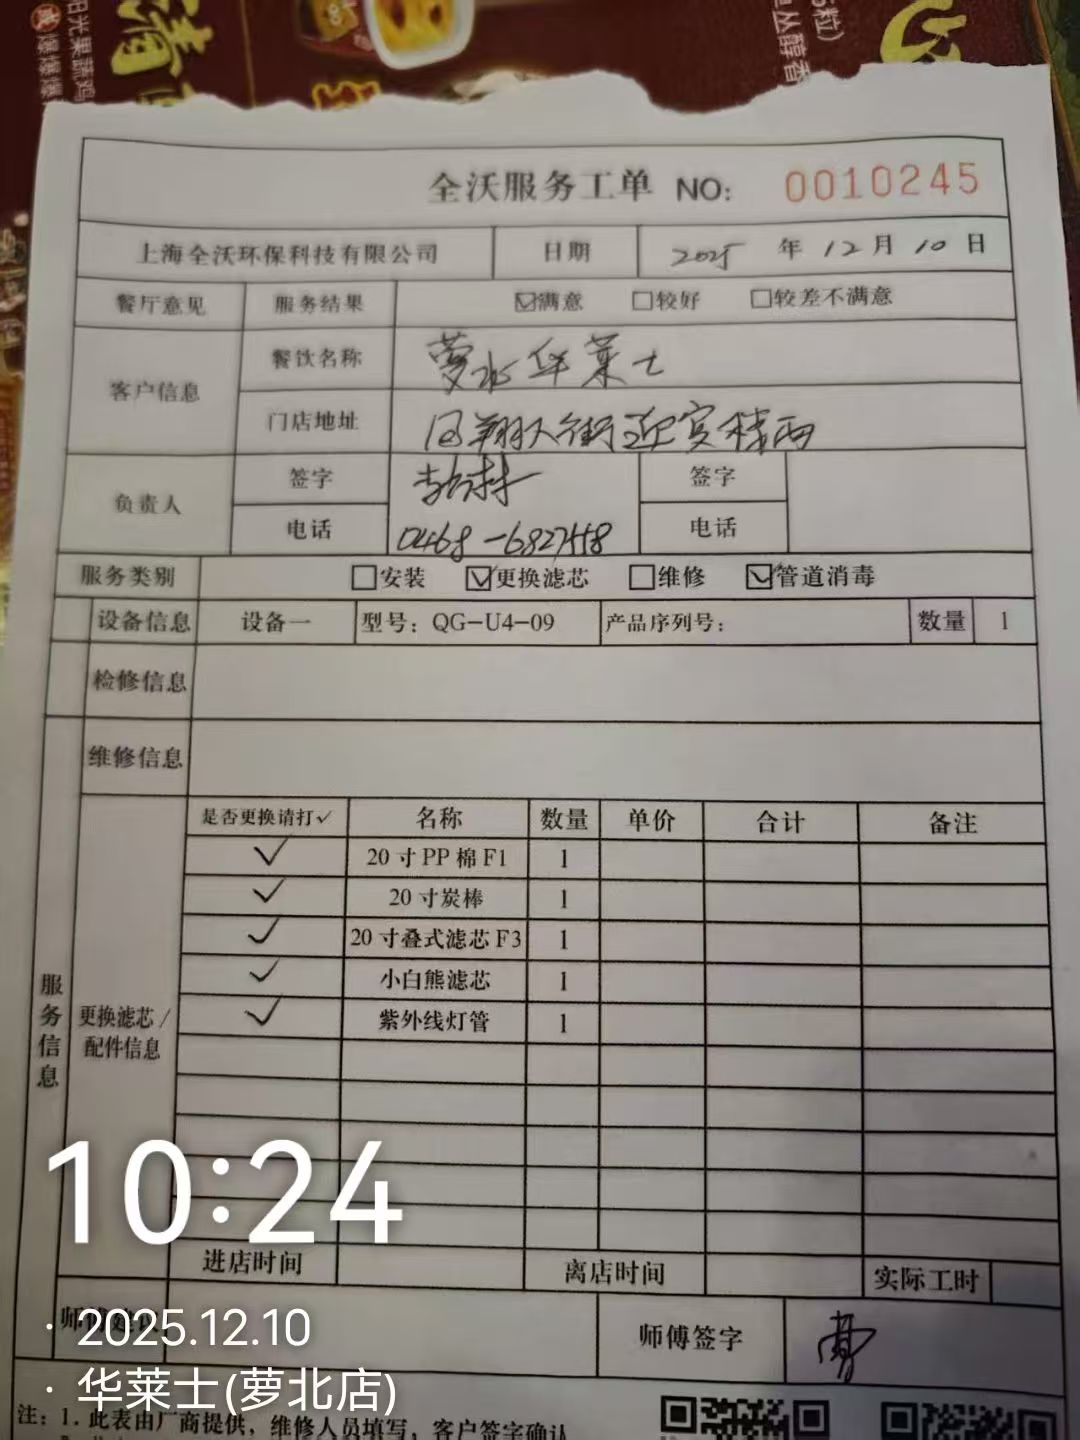 阳光果蔬鸡
全沃服务工单 NO: 0010245
上海全沃环保科技有限公司 日期 2025 年 12 月 10 日
餐厅意见 服务结果 ☑满意 □较好 □较差不满意
客户信息 餐饮名称 萝北华莱士
门店地址 凤翔大街迎宾楼西
负责人 签字 签字
电话 0468-6827458 电话
服务类别 □安装 ☑更换滤芯 □维修 ☑管道消毒
设备信息 设备一 型号：QG-U4-09 产品序列号： 数量 1
检修信息
维修信息
服务信息
更换滤芯/
配件信息
是否更换请打✓ 名称 数量 单价 合计 备注
✓ 20寸PP棉F1 1
✓ 20寸炭棒 1
✓ 20寸叠式滤芯F3 1
✓ 小白熊滤芯 1
✓ 紫外线灯管 1
10:24
进店时间 离店时间 实际工时
师傅建议 师傅签字
· 2025.12.10
· 华莱士(萝北店)
注：1. 此表由厂商提供，维修人员填写，客户签字确认